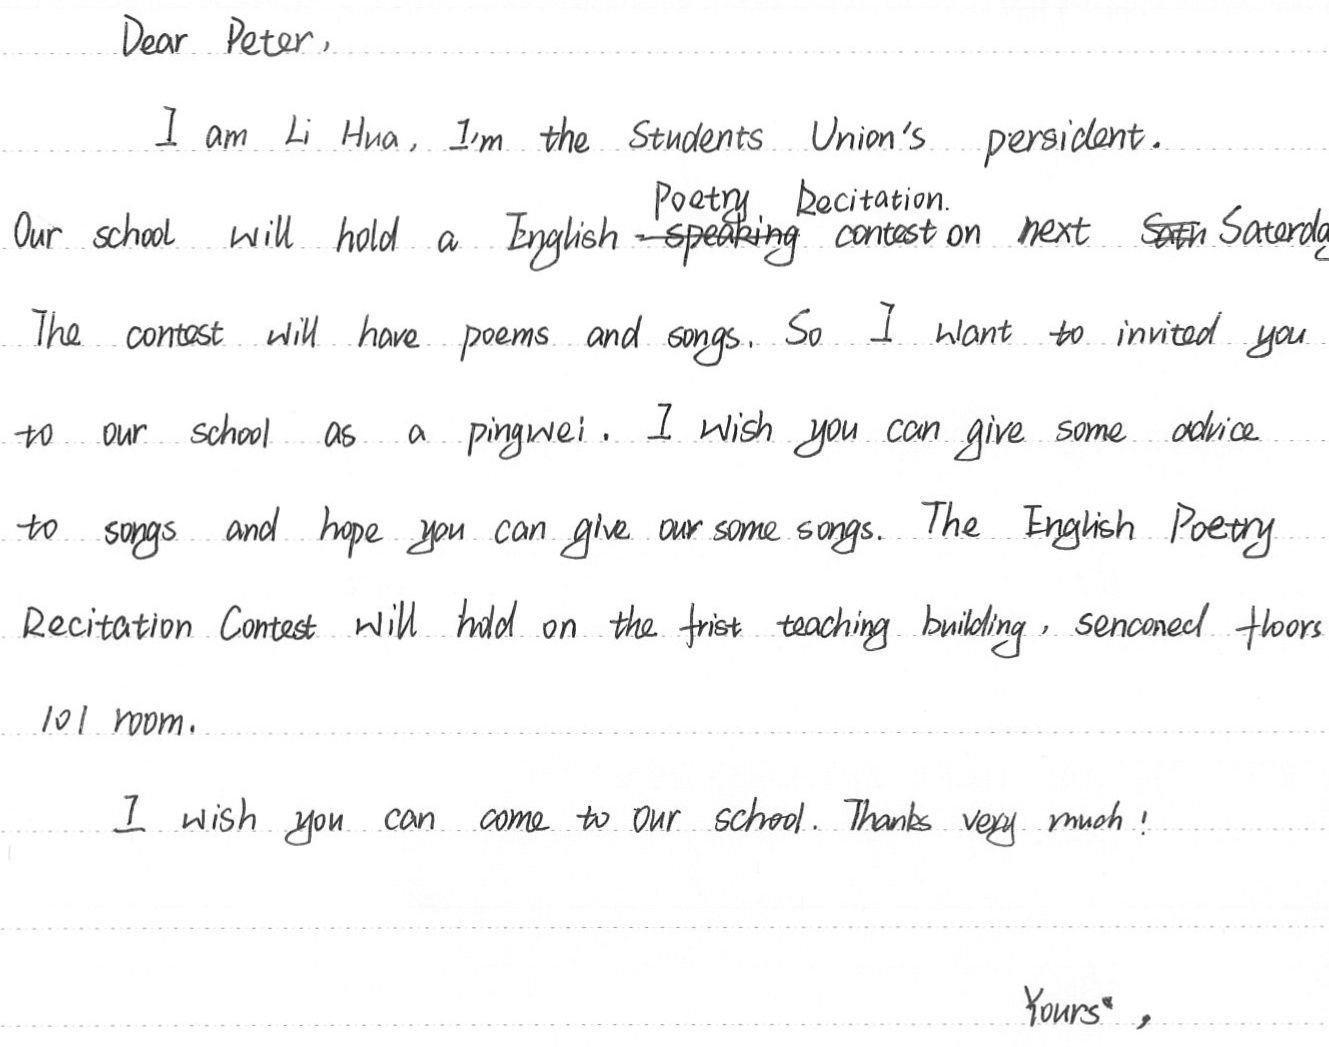 Dear Peter,
I am Li Hua, I'm the Students Union's persident.
Poetry Recitation.
Our school will hold a English speaking contest on next Saterda
The contest will have poems and songs. So I want to invited you
to our school as a pingwei. I wish you can give some advice
to songs and hope you can give our some songs. The English Poetry
Recitation Contest will hold on the frist teaching building, senconed floors
101 room.
I wish you can come to our school. Thanks very much!
Yours,